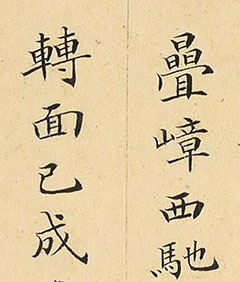 疊嶂西馳
轉面已成